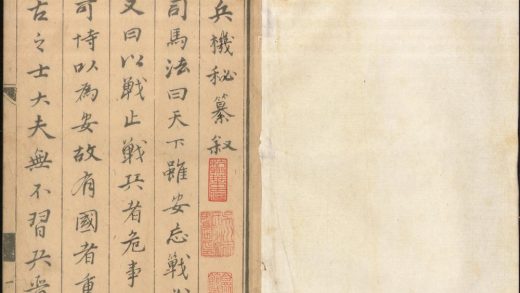 兵機秘纂叙
司馬法曰天下雖安忘戰
又曰以戰止戰兵者危事
可恃以為安故有國者重
古之士大夫無不習兵晉